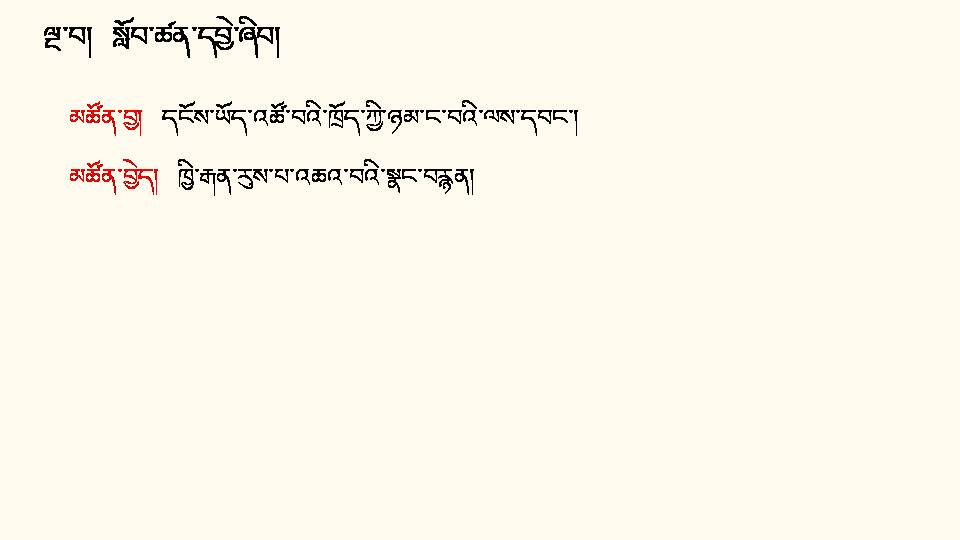 ལྔ་བ། སློབ་ཚན་དབྱེ་ཞིབ།
མཚོན་བྱ། དངོས་ཡོད་འཚོ་བའི་ཁྲོད་ཀྱི་ཉམ་ང་བའི་ལས་དབང་།
མཚོན་བྱེད། ཁྱི་རྒན་རུས་པ་འཆའ་བའི་སྣང་བརྙན།